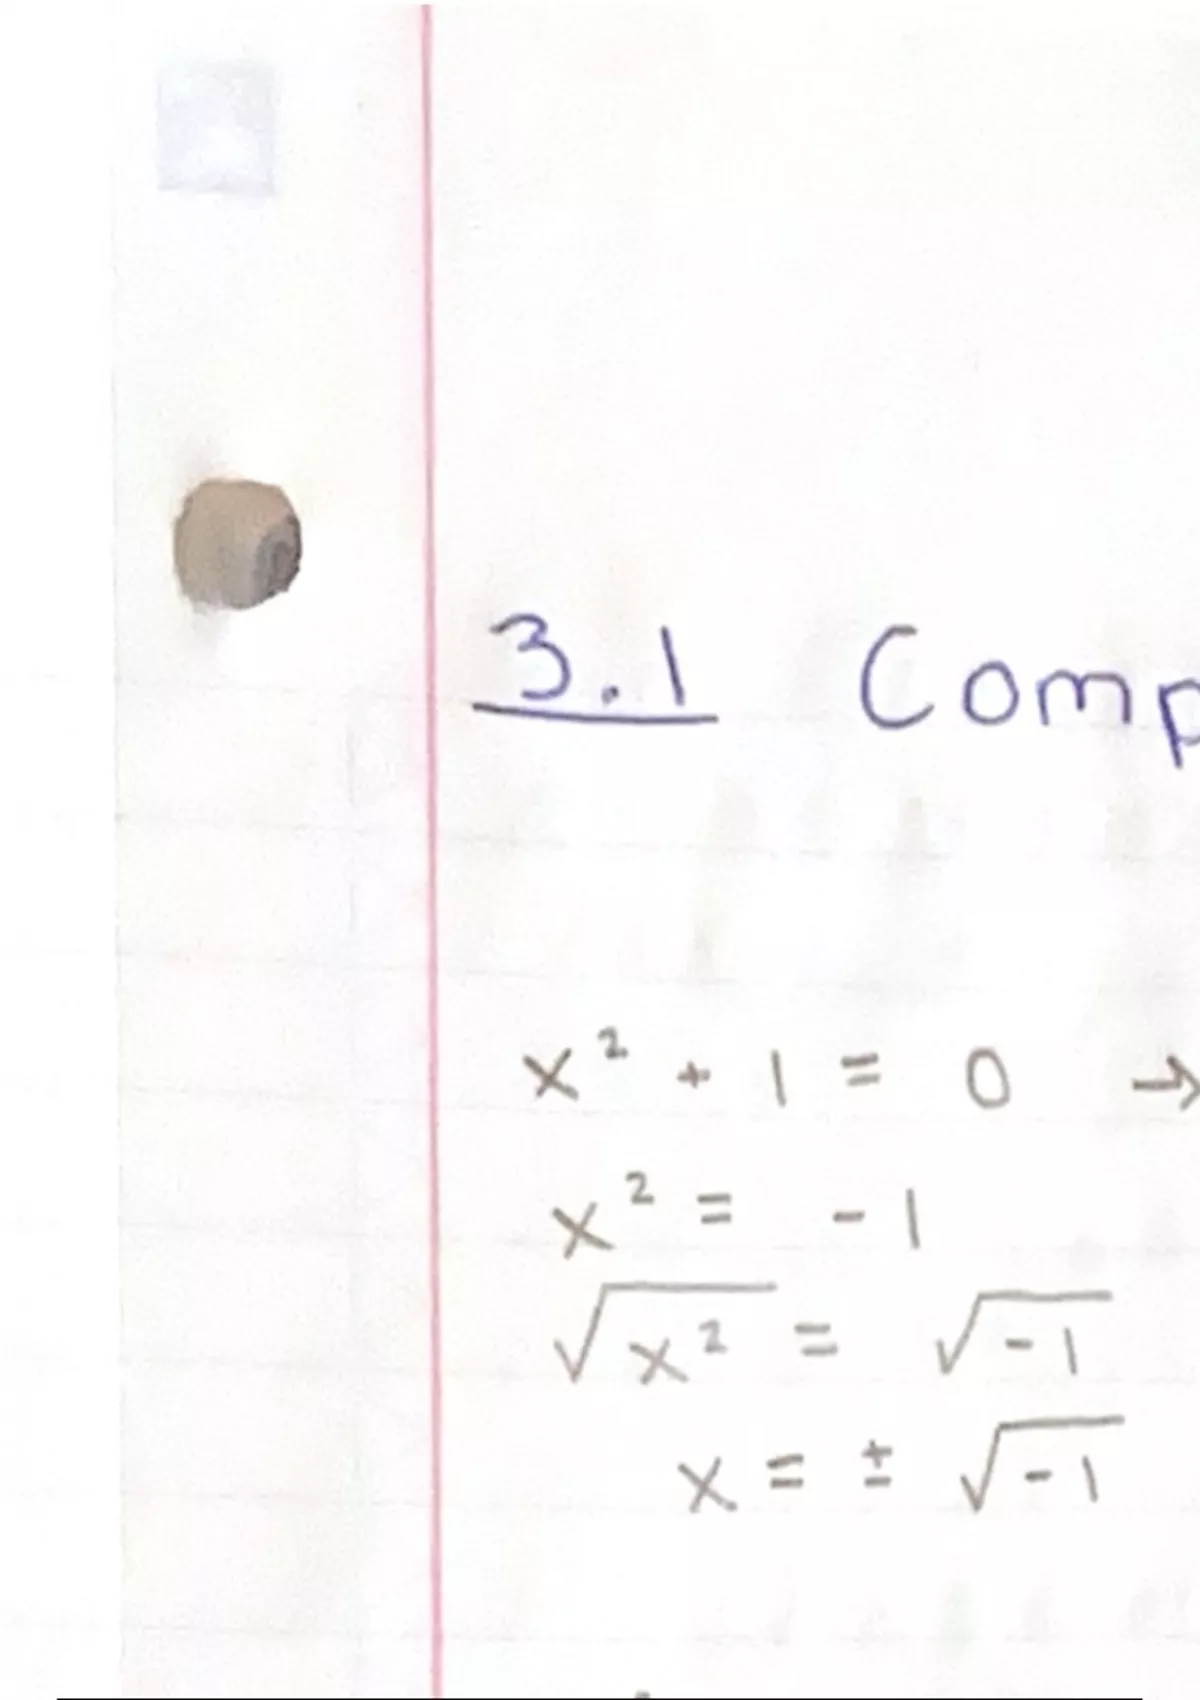 3.1 Comp
x² + 1 = 0 →
x² = -1
√x² = √-1
x = ± √-1